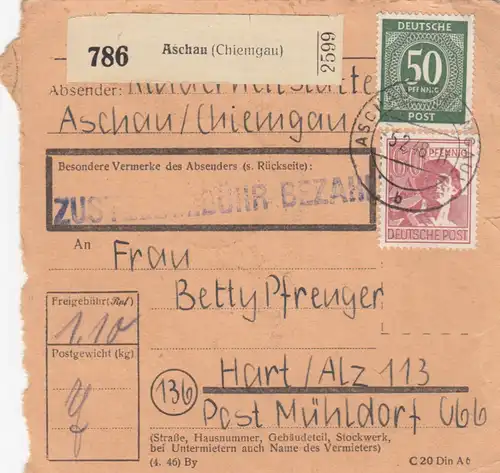 786 Aschau (Chiemgau) 2599
DEUTSCHE
50
PFENNIG
POST
Absender:
Aschau/Chiemgau
Besondere Vermerke des Absenders (s. Rückseite):
ZUSTELLGEBÜHR BEZAHLT
PFENNIG
DEUTSCHE POST
b
An Frau
Betty Pfrenger
Freigebühr (Rpf)
1,10
Postgewicht (kg)
Hart/Alz 113
(13b)
Post Mühldorf Obb
(Straße, Hausnummer, Gebäudeteil, Stockwerk,
bei Untermietern auch Name des Vermieters)
(4. 46) By
C 20 Din A 6